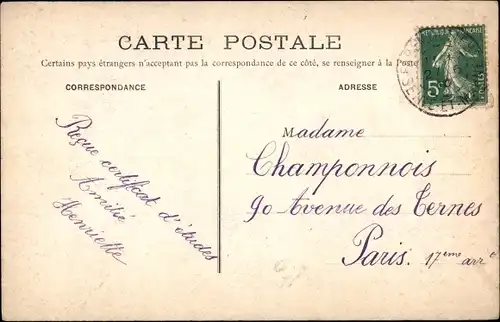 CARTE POSTALE
Certains pays étrangers n'acceptant pas la correspondance de ce côté, se renseigner à la Poste
CORRESPONDANCE
ADRESSE
5
POSTES
Reçue certificat d'études
Amitié
Henriette
Madame
Champonnois
90 Avenue des Ternes
Paris. 17eme arre